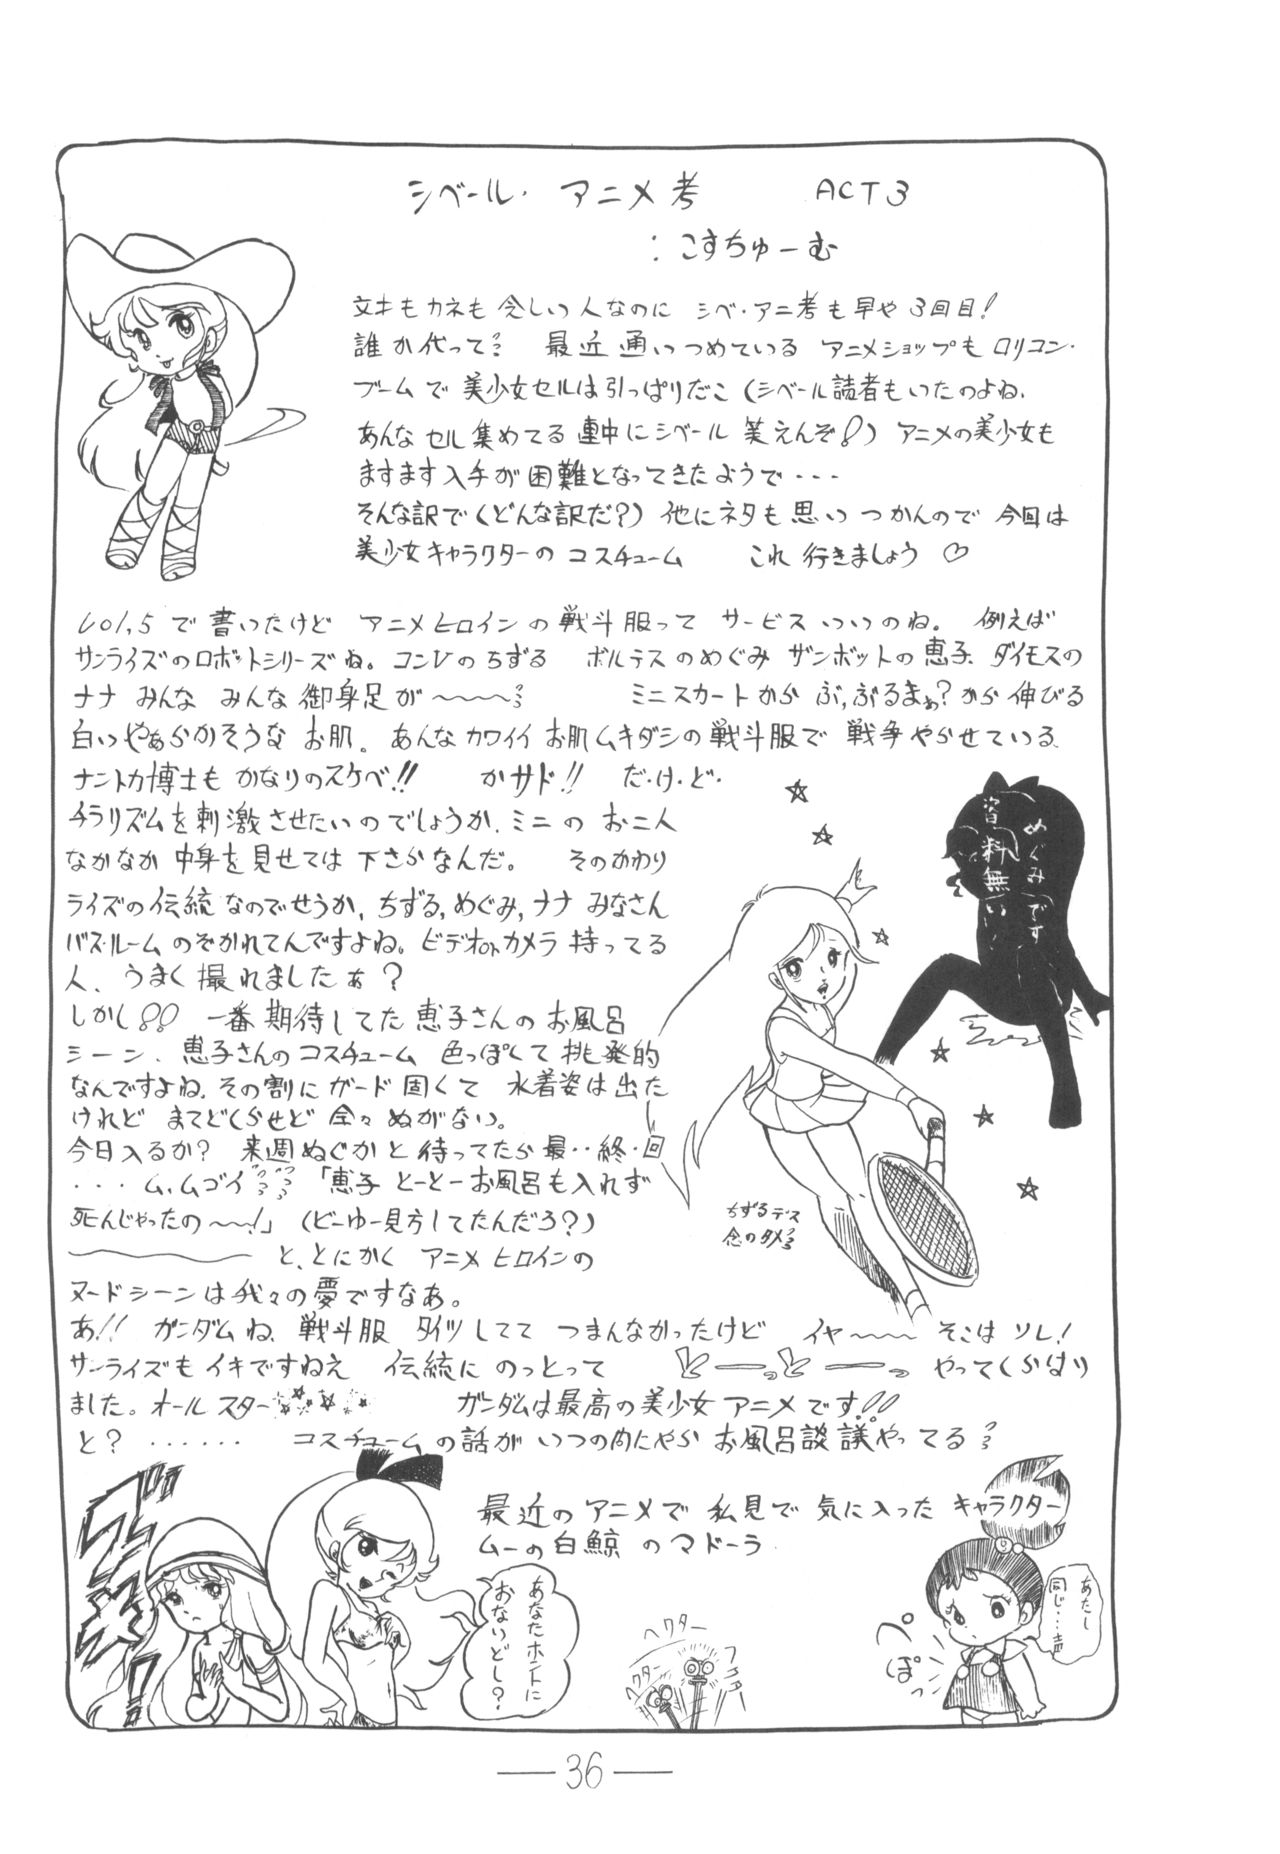 シベール・アニメ考 ACT3
：こすちゅーむ
文才もカネも乏しい人なのに シベ・アニ考も早や3回目！
誰か代って 最近通いつめている アニメショップも ロリコン・
ブームで 美少女セルは引っぱりだこ（シベール読者もいたのよね、
あんな セル集めてる 連中にシベール 笑えんぞ！）アニメの美少女も
ますます入手が困難となってきたようで・・・
そんな訳で（どんな訳だ？）他にネタも思い つかんので 今回は
美少女キャラクターの コスチューム これ 行きましょう ♡
Vol.5で書いたけど アニメヒロインの戦斗服って サービスいいのね。 例えば
サンライズのロボットシリーズね。コンVのちずる ボルテスのめぐみ ザンボットの恵子、ダイモスの
ナナ みんな みんな 御身足が〜〜〜 ミニスカートから ぶ,ぶるまぁ？から 伸びる
白いやぁらかそうな お肌。 あんなカワイイ お肌ムキダシの戦斗服で 戦争やらせている、
ナントカ博士も かなりのスケベ!! かサド!! だ・け・ど・
チラリズムを刺激させたいのでしょうか、ミニの お二人
なかなか 中身を見せては 下さらなんだ。 そのかわり
ライズの伝統なのでせうか, ちずる, めぐみ, ナナ みなさん
バス・ルーム のぞかれてんですよね。ビデオorカメラ 持ってる
人、うまく撮れましたぁ？
しかし!! 一番期待してた恵子さんのお風呂
シーン、恵子さんのコスチューム 色っぽくて挑発的
なんですよね、その割にガード固くて 水着姿は出た
けれど まてどくらせど 全々ぬがない。
今日入るか？ 来週ぬぐかと待ってたら 最・・終・回
・・・ム,ムゴイ 「恵子 とーとーお風呂も入れず
死んじゃったの〜〜！」（どーゆー見方してたんだろ？）
と、とにかく アニメヒロインの
ヌードシーンは我々の夢ですなあ。
あ!! ガンダムね、戦斗服 タイツしてて つまんなかったけど イヤ〜〜〜 そこは ソレ！
サンライズも イキですねえ 伝統に のっとって どーっとーっ やってくらはり
ました。オールスター ガンダムは最高の美少女アニメです!!
と？ ・・・・・・ コスチュームの話が いつの間にやら お風呂談議やってる
めぐみです
資料無い
ちずるデス
念のタメ
最近のアニメで 私見で気に入った キャラクター
ムーの白鯨 のマドーラ
あなたホントに
おないどし？
ヘクター
ヘクター
あたし
同じ・・
ぺ
ぽっ
— 36 —